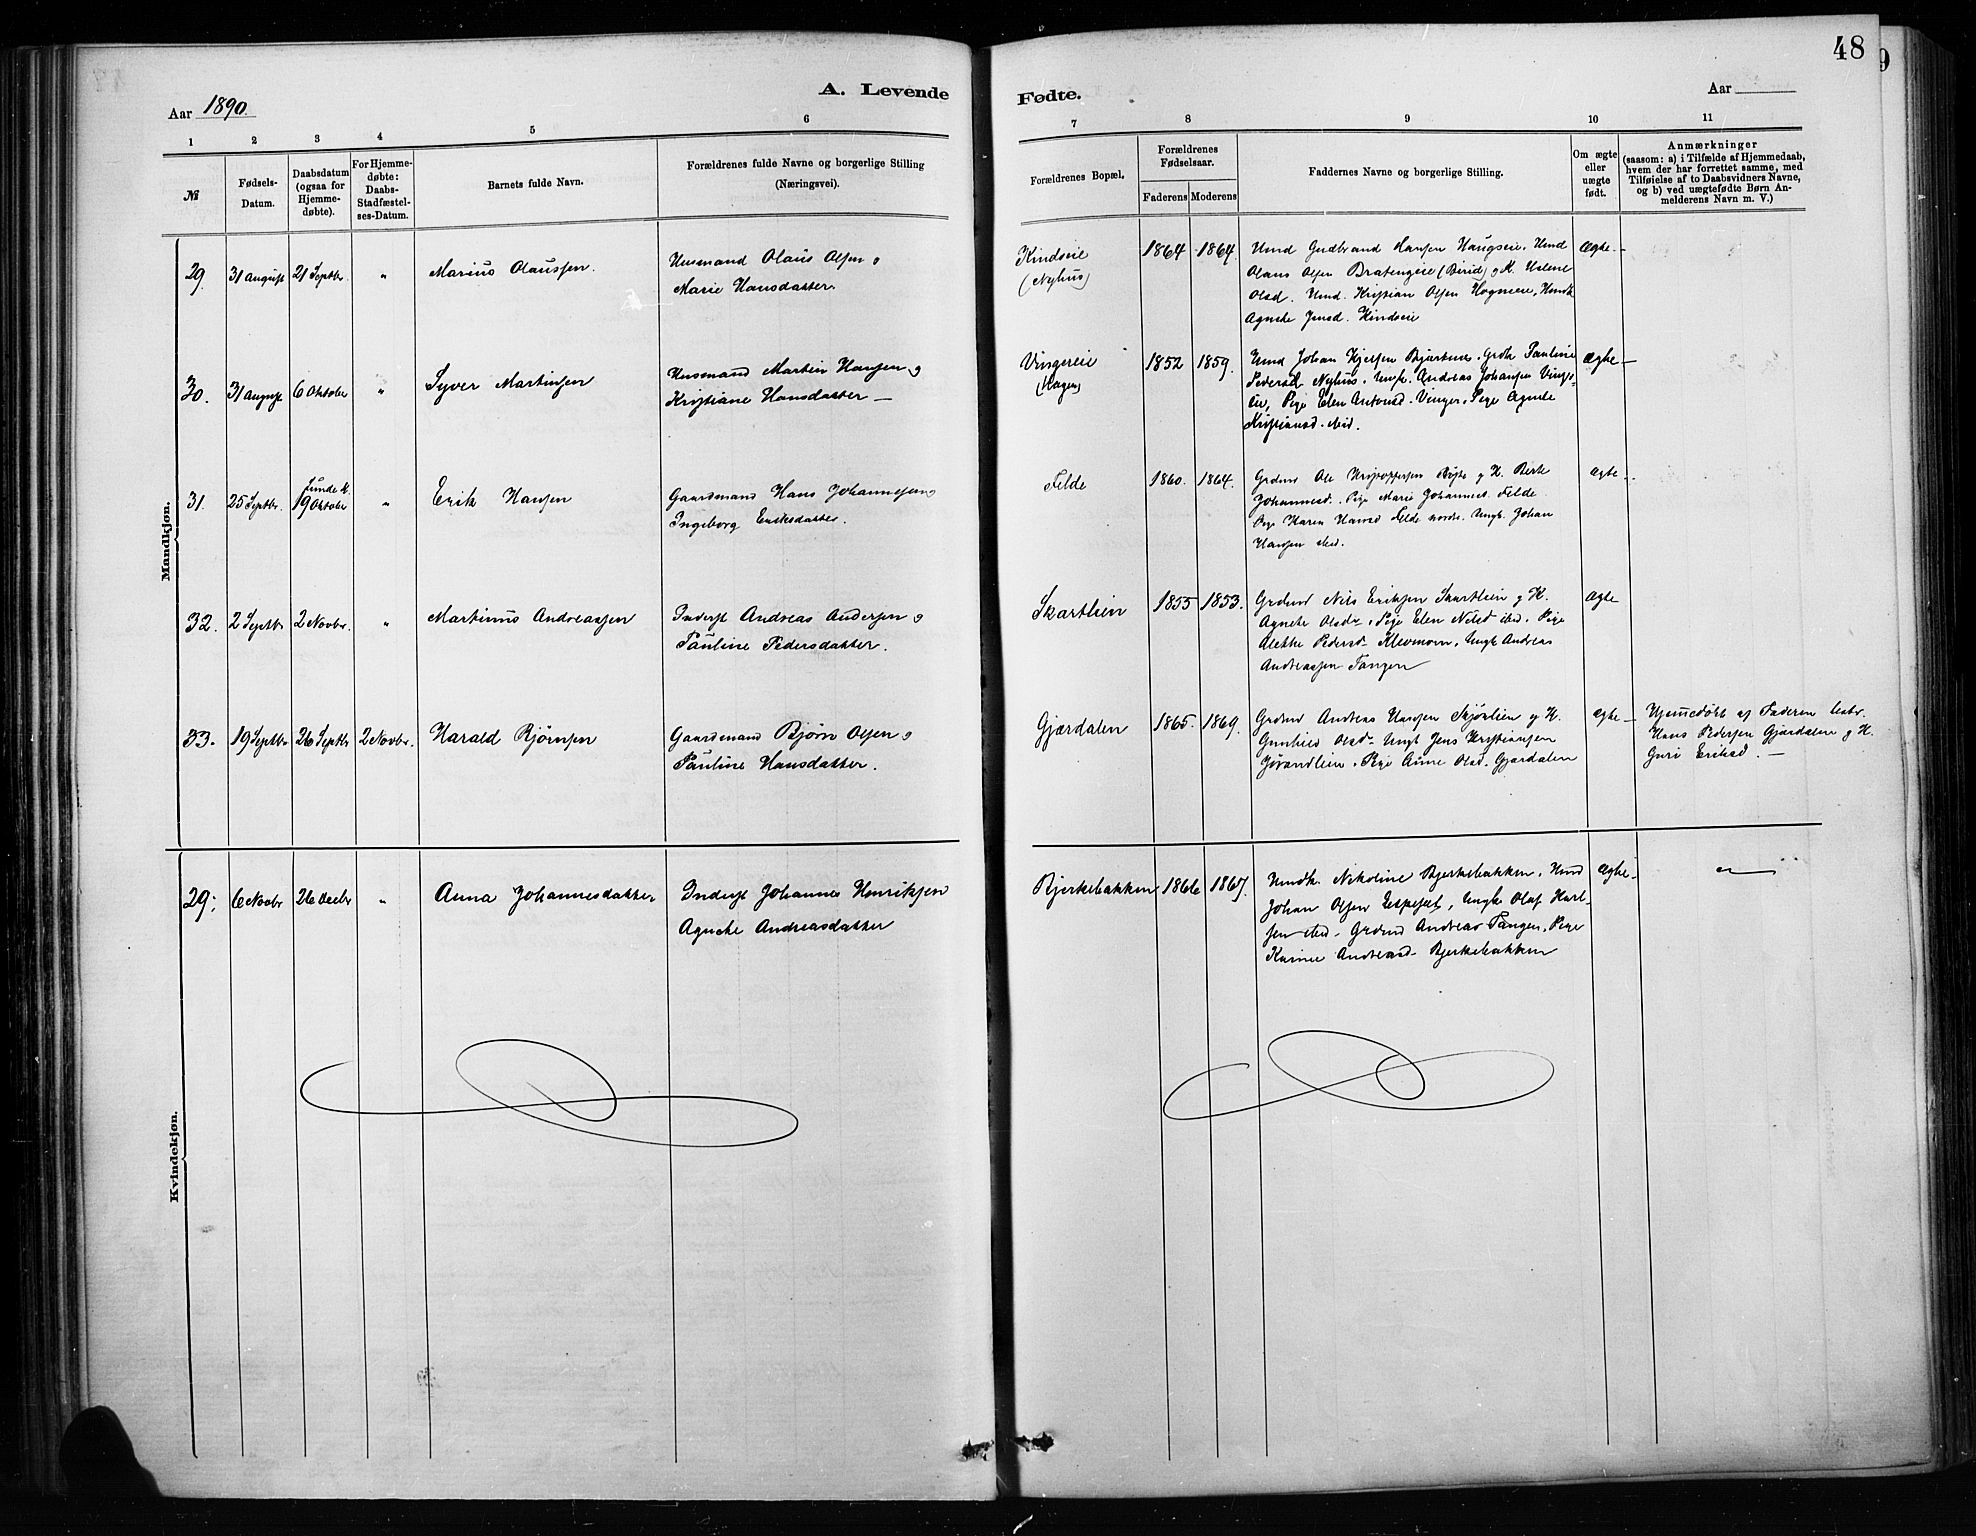 48
9
Aar 1890.
A. Levende
Fødte.
Aar
1 2 3 4 5 6
7 8 9 10 11
№
Fødsels-
Datum.
Daabsdatum
(ogsaa for
Hjemme-
døbte).
For Hjemme-
døbte:
Daabs-
Stadfæstel-
ses-Datum.
Barnets fulde Navn.
Forældrenes fulde Navne og borgerlige Stilling
(Næringsvei).
Forældrenes Bopæl.
Forældrenes
Fødselsaar.
Faderens Moderens
Faddernes Navne og borgerlige Stilling.
Om ægte
eller
uægte
født.
Anmærkninger
(saasom: a) i Tilfælde af Hjemmedaab,
hvem der har forrettet samme, med
Tilføielse af to Daabsvidners Navne,
og b) ved uægtefødte Børn An-
melderens Navn m. V.)
Mandkjøn.
29. 31 August 21 Septbr. " Marius Olaussen.
Husmand Olaus Olsen og
Marie Hansdatter.
Kindseie
(Nyhus)
1864 1864.
Umd Gudbrand Hansen Haugseie. Umd
Olaus Olsen Bratengeie (Birid) og K.
Olsd. Umd. Kristian Olsen
Agnethe Jensd. Kindseie
Ægte
30. 31 August 6 Oktober " Syver Martinsen
Husmand Martin Hansen og
Kristiane Hansdatter
Vingereie
(Hagen)
1852 1859.
Johan
Pedersd Nyhus. Ungk. Andreas Johansen Vings-
eie, Pige Elen Antonsd. Vinger. Pige Agnete
Kristiansd. ibid.
Ægte
31. 25 Septbr. 19 Oktober " Erik Hansen
Gaardmand Hans Johannesen og
Ingeborg Eriksdatter.
Felde
1860. 1864.
Grdmd Ole Kristoffersen og K. Berte
Johannesd. Pige Marie Johannesd. Felde
Pige Karen Hansd Felde nordre. Ungk. Johan
Hansen ibid.
ægte
32. 2 Septbr 2 Novbr. " Martinus Andreassen
Inderst Andreas Andersen og
Pauline Pedersdatter.
Skartlien
1855 1853.
Grdmd Nils Eriksen Skartlien og K.
Agnete Olsdr. Pige Elen Nilsd ibid. Pige
Alethe Pedersd Klevmoen. Ungk Andreas
Andreassen Tangen
Ægte
33. 19 Septbr 26 Septbr 2 Novbr. Harald Bjørnsen
Gaardmand Bjørn Olsen og
Pauline Hansdatter.
Gjærdalen
1865. 1869.
Grdmd Andreas Hansen Skjønlien og K.
Gunhild Olsd. Ungk Jens Kristiansen
Gjærdalen
Pige Anne Olsd. Gjærdalen
ægte
Hjemmedøbt af Faderen testes
Hans Pedersen Gjærdalen og K.
Guri Eriksd.
Kvindekjøn.
29. 6 Novbr 26 Decbr " Anna Johannesdatter
Inderst Johannes Henriksen
Agnethe Andreasdatter
Bjerkebakken
1866 1867.
Umdk. Nikoline Bjerkebakken. Umd
Johan Olsen Ungk Olaf Karl-
sen ibid. Grdmd Andreas Tangen. Pige
Karine Andreasd. Bjerkebakken
Ægte